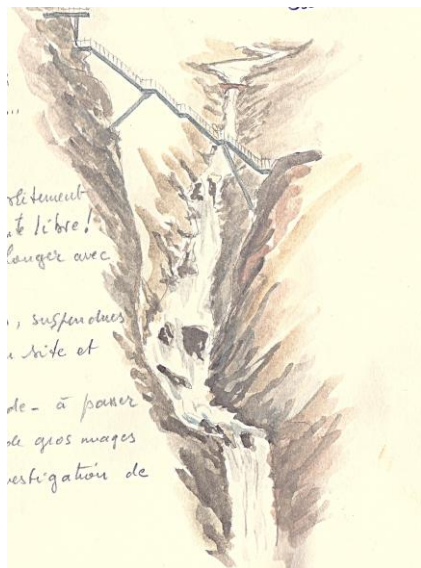 te libre!
longer avec
, suspendues
site et
de - à passer
de gros nuages
vestigation de